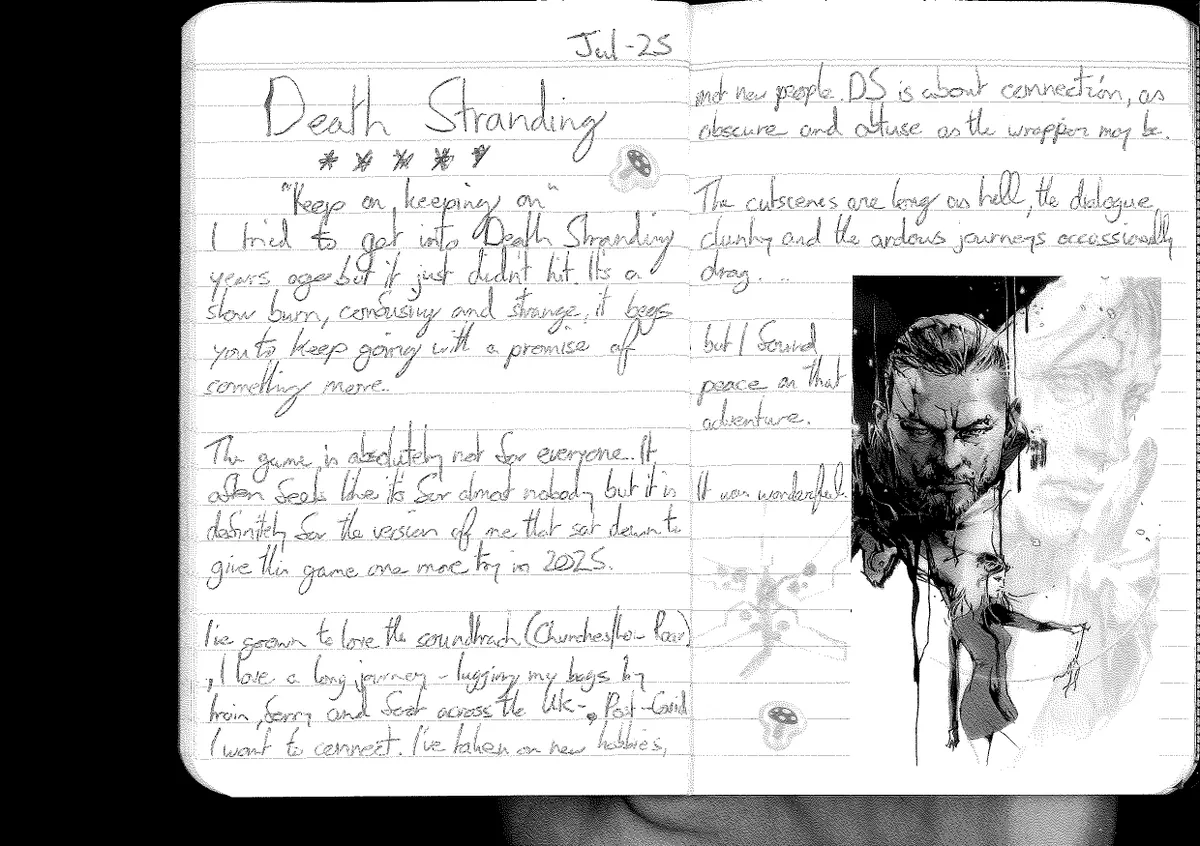 Jul-25
Death Stranding
* * * * *
"Keep on keeping on"
I tried to get into Death Stranding
years ago but it just didn't hit. Its a
slow burn, confusing and strange, it begs
you to keep going with a promise of
something more..
The game is absolutely not for everyone.. It
often feels like its for almost nobody but it is
definitely for the version of me that sat down to
give this game one more try in 2025.
I've grown to love the soundtrack (Churches/Low Roar)
, I love a long journey - lugging my bags by
train, ferry and foot across the UK-. Post-Covid
I want to connect. I've taken on new hobbies,
met new people. DS is about connection, as
obscure and obtuse as the wrapper may be.
The cutscenes are long as hell, the dialogue
clunky and the ardous journeys occassionally
drag. ..
but I found
peace on that
adventure.
It was wonderful.